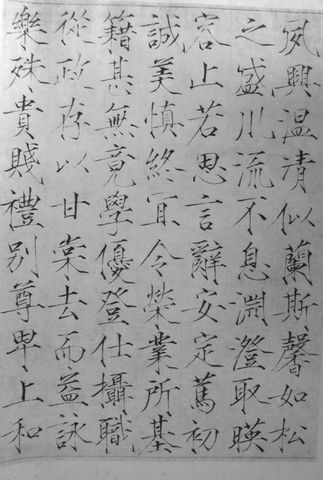 夙興温清似蘭斯馨如松
之盛川流不息淵澄取暎
容止若思言辭安定篤初
誠美慎終宜令榮業所基
籍甚無竟學優登仕攝職
從政存以甘棠去而益詠
樂殊貴賤禮別尊卑上和